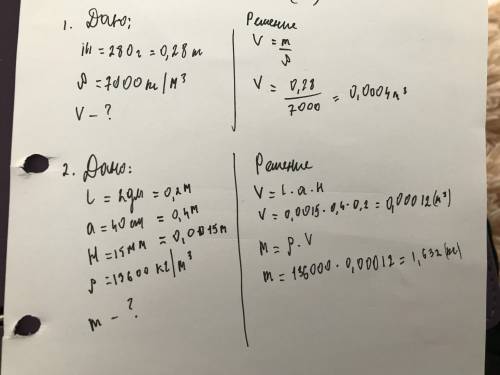 1. Дано:
m = 280г = 0,28 т
ρ = 7000 кг/м³
V - ?
Решение
V = m/ρ
V = 0,28/7000 = 0,0004 м³
2. Дано:
l = 2дм = 0,2м
a = 40 см = 0,4м
H = 15мм = 0,0015м
ρ = 13600 кг/м³
m - ?
Решение
V = l · a · H
V = 0,0015 · 0,4 · 0,2 = 0,00012 (м³)
M = ρ · V
m = 136000 · 0,00012 = 1,632 (кг)